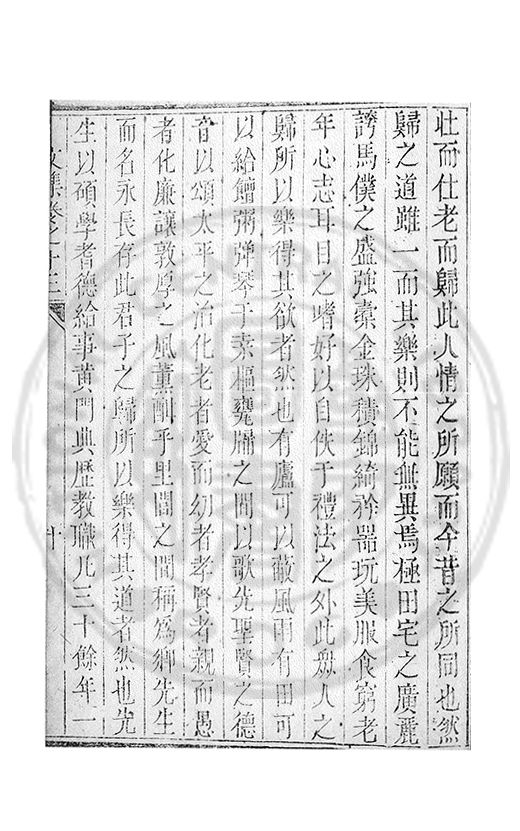 壯而仕老而歸此人情之所願而今昔之所同也然
歸之道雖一而其樂則不能無異焉極田宅之廣麗
誇馬僕之盛強橐金珠積錦綺矜器玩美服食窮老
年心志耳目之嗜好以自佚于禮法之外此衆人之
歸所以樂得其欲者然也有廬可以蔽風雨有田可
以給饘粥彈琴于桑樞甕牖之間以歌先聖賢之德
音以頌太平之治化老者愛而幼者孝賢者親而愚
者化廉讓敦厚之風薰酣乎里閭之間稱為鄉先生
而名永長存此君子之歸所以樂得其道者然也先
生以碩學耆德給事黃門典歷教職凡三十餘年一
文集卷之十三
十